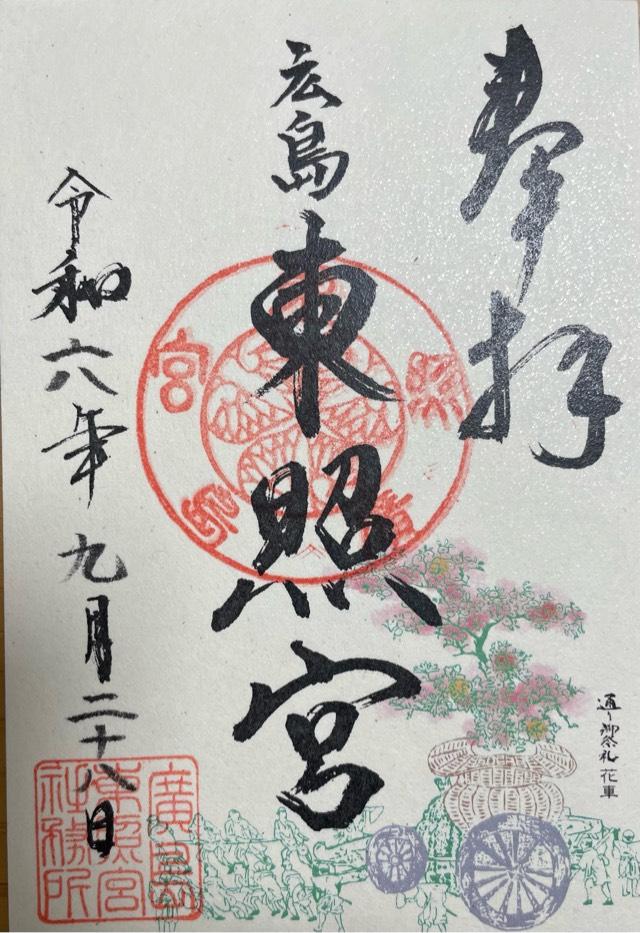 奉拝
広島
東照宮
令和六年九月二十八日
通り御祭礼 花車
廣島
東照宮
社務所